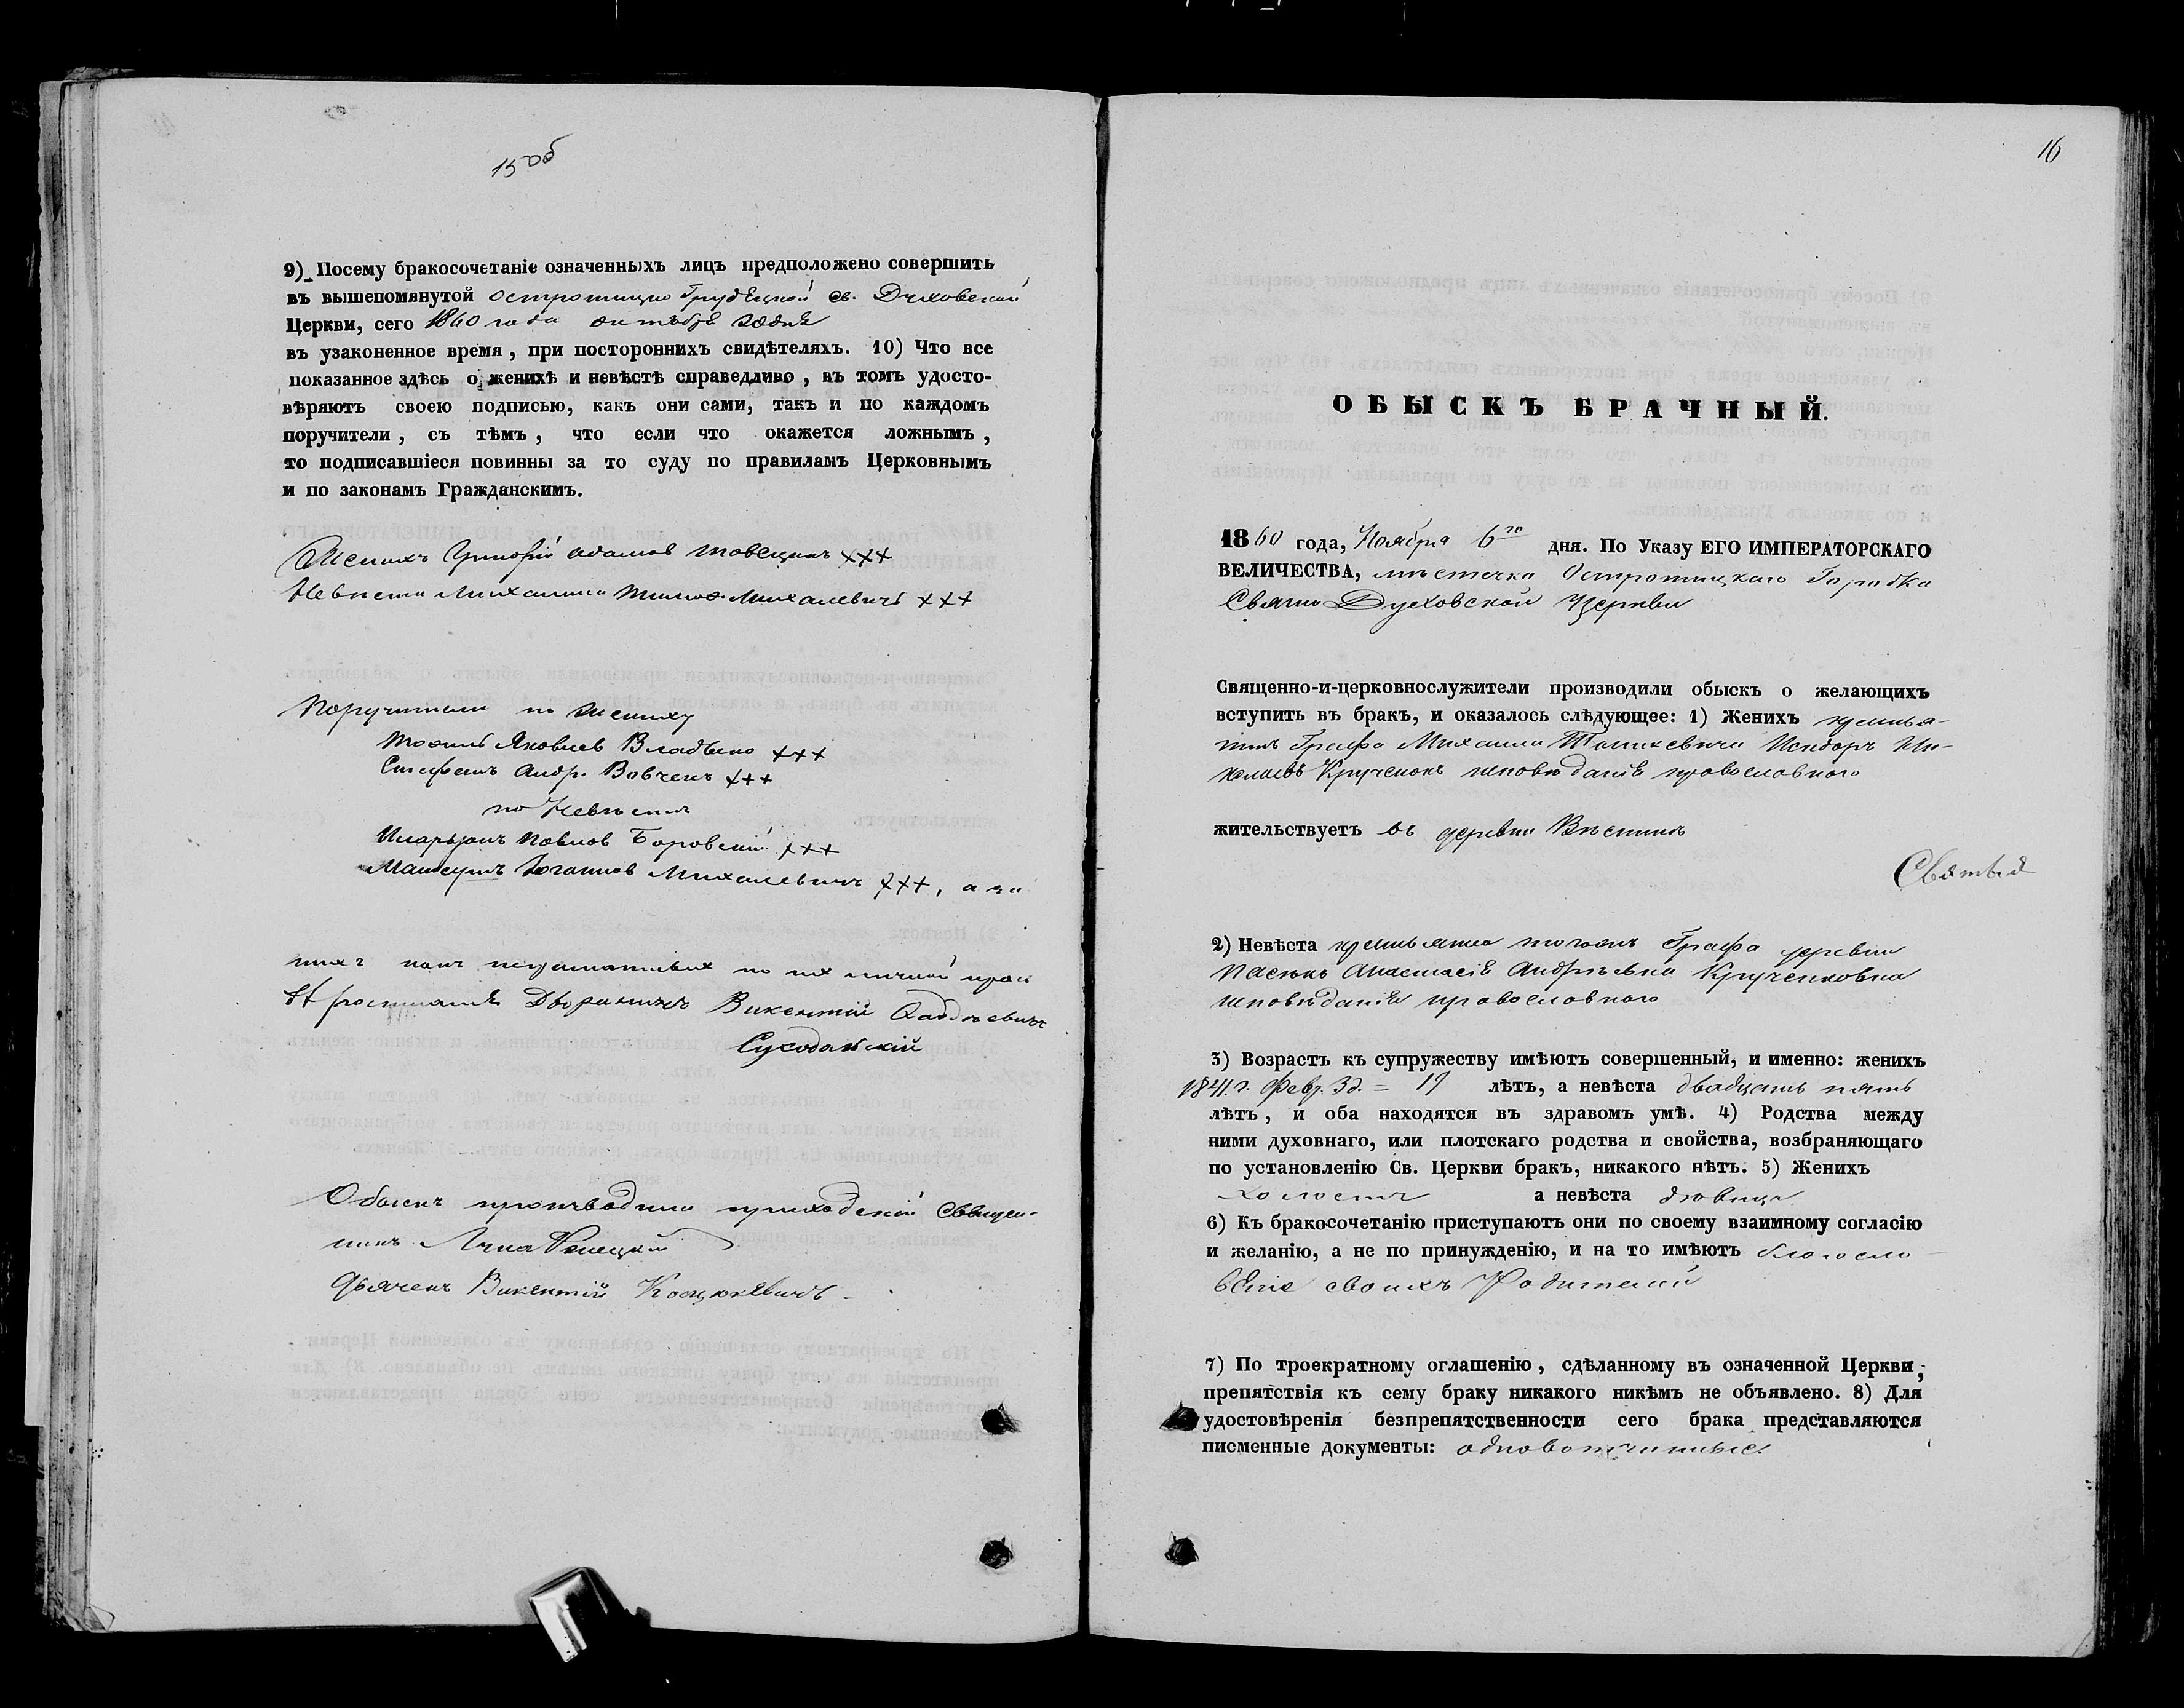 15 об
9) Посему бракосочетаніе означенныхъ лицъ предположено совершить
въ вышепомянутой св. Духовской
Церкви, сего 1860 года октября
въ узаконенное время, при постороннихъ свидѣтеляхъ. 10) Что все
показанное здѣсь о женихѣ и невѣстѣ справедливо, въ томъ удосто-
вѣряютъ своею подписью, какъ они сами, такъ и по каждомъ
поручители, съ тѣмъ, что если что окажется ложнымъ,
то подписавшіеся повинны за то суду по правиламъ Церковнымъ
и по законамъ Гражданскимъ.
Женихъ Григорій Адамов +++
Невѣста Михалина Михалевичъ +++
Поручители по жениху
Яковлев +++
Стефанъ Андр. Вавченъ +++
по Невѣстѣ
Иларіонъ Павлов Боровскій +++
Михалевичъ +++, а за
нихъ какъ неграмотныхъ по их личной прось
бѣ росписался Дворянинъ Викентій
Суходольскій
Обыскъ производили приходскій Священ-
никъ
Дьячекъ Викентій Коцюкевичъ
16
ОБЫСКЪ БРАЧНЫЙ.
1860 года, Ноября 6го дня. По Указу ЕГО ИМПЕРАТОРСКАГО
ВЕЛИЧЕСТВА, мѣстечка Острошицкаго Городка
Свято Духовской Церкви
Священно-и-церковнослужители производили обыскъ о желающихъ
вступить въ бракъ, и оказалось слѣдующее: 1) Женихъ крестья-
нинъ Графа Михаила Тышкевича Исидоръ Ни-
колаевъ Крученокъ исповѣданія православного
жительствуетъ въ деревни
2) Невѣста крестьянка тогожъ Графа деревни
Пасѣкъ Анастасія Андрѣевна Крученковна
исповѣданія православного
3) Возрастъ къ супружеству имѣютъ совершенный, и именно: женихъ
1841 г. Февр. 3 д. = 19 лѣтъ, а невѣста двадцать пять
лѣтъ, и оба находятся въ здравомъ умѣ. 4) Родства между
ними духовнаго, или плотскаго родства и свойства, возбраняющаго
по установленію Св. Церкви бракъ, никакого нѣтъ. 5) Женихъ
холостъ а невѣста дѣвица
6) Къ бракосочетанію приступаютъ они по своему взаимному согласію
и желанію, а не по принужденію, и на то имѣютъ благосло
веніе своихъ Родителей
7) По троекратному оглашенію, сдѣланному въ означенной Церкви,
препятствія къ сему браку никакого никѣмъ не объявлено. 8) Для
удостовѣренія безпрепятственности сего брака представляются
писменные документы: одновотчинные